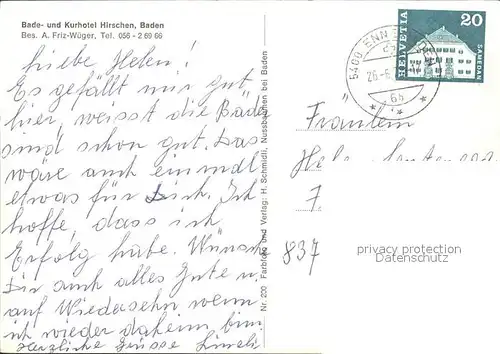 Bade- und Kurhotel Hirschen, Baden
Bes. A. Friz-Wüger, Tel. 056 - 2 69 66
Liebe Helen!
Es gefällt mir gut
hier, weisst die Bäder
sind schon gut. Das
wäre auch einmal
etwas für Dich. Ich
hoffe, dass ich
Erfolg habe. Wünsch
Dir auch alles Gute u.
auf Wiedersehn wenn
ich wieder daheim bin.
Herzliche Grüsse
Nr. 200 Farbfoto und Verlag: H. Schmidli, Nussbaumen bei Baden
5400 ENN
26.-6.
HELVETIA
20
SAMEDAN
Fräulein
7.
837
privacy protection
Datenschutz